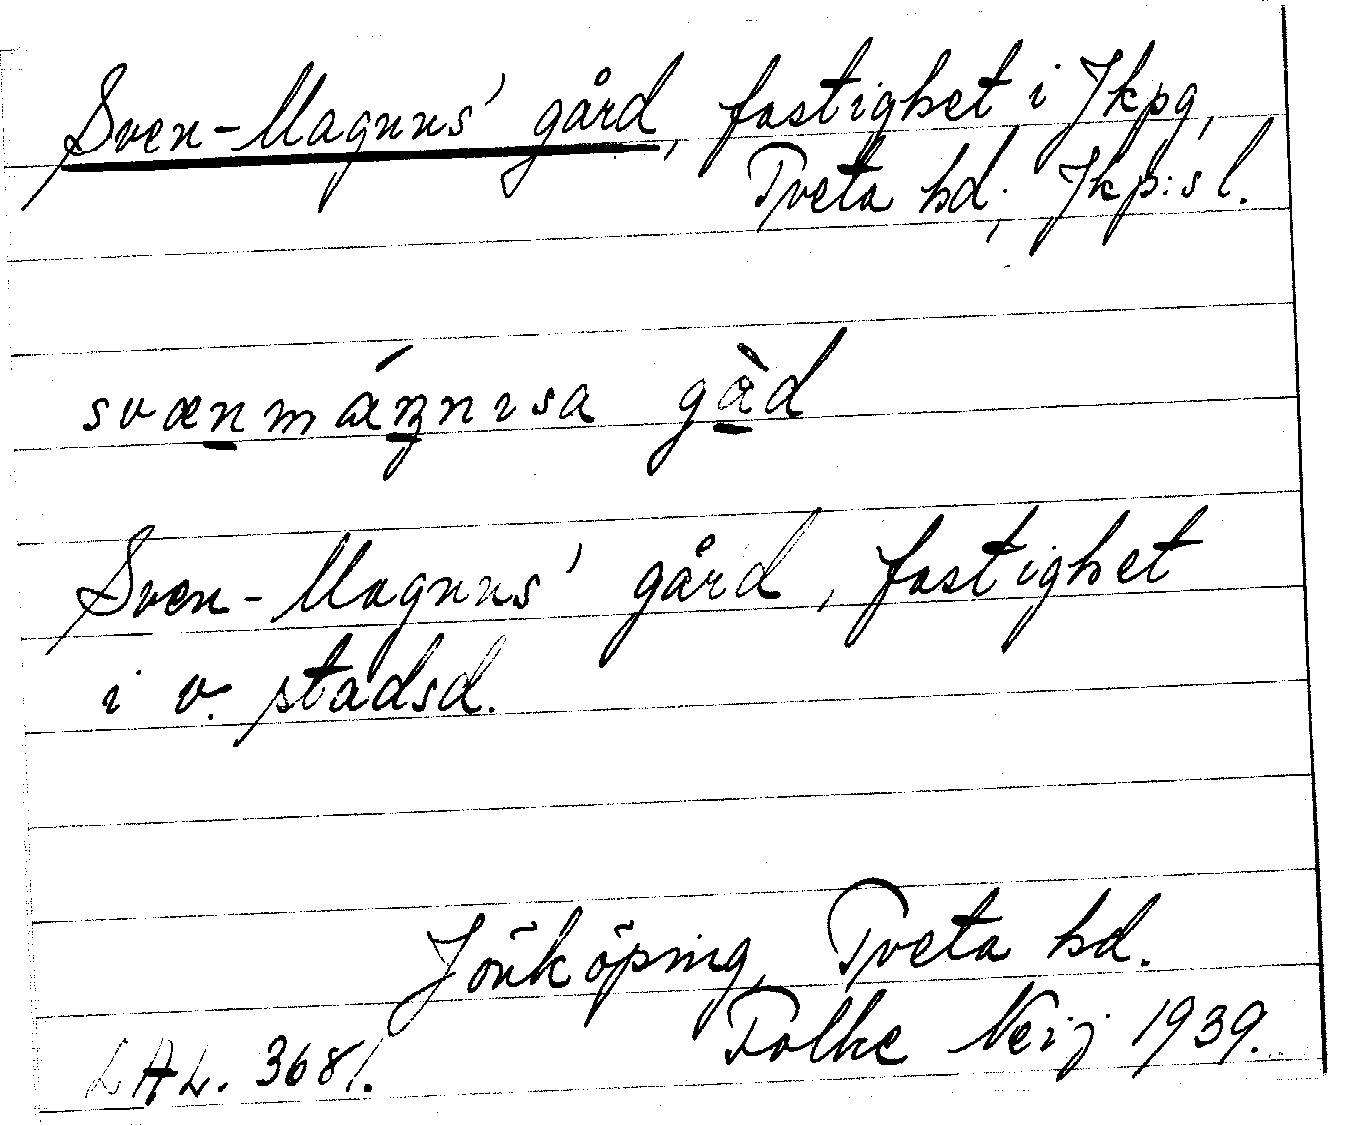 Sven-Magnus' gård, fastighet i Jkpg,
Tveta hd; Jkp:s l.
svænmáŋnısa gàd
Sven-Magnus' gård, fastighet
i v. stadsd.
Jönköping, Tveta hd.
Folke Neij 1939.
LAL. 3681.